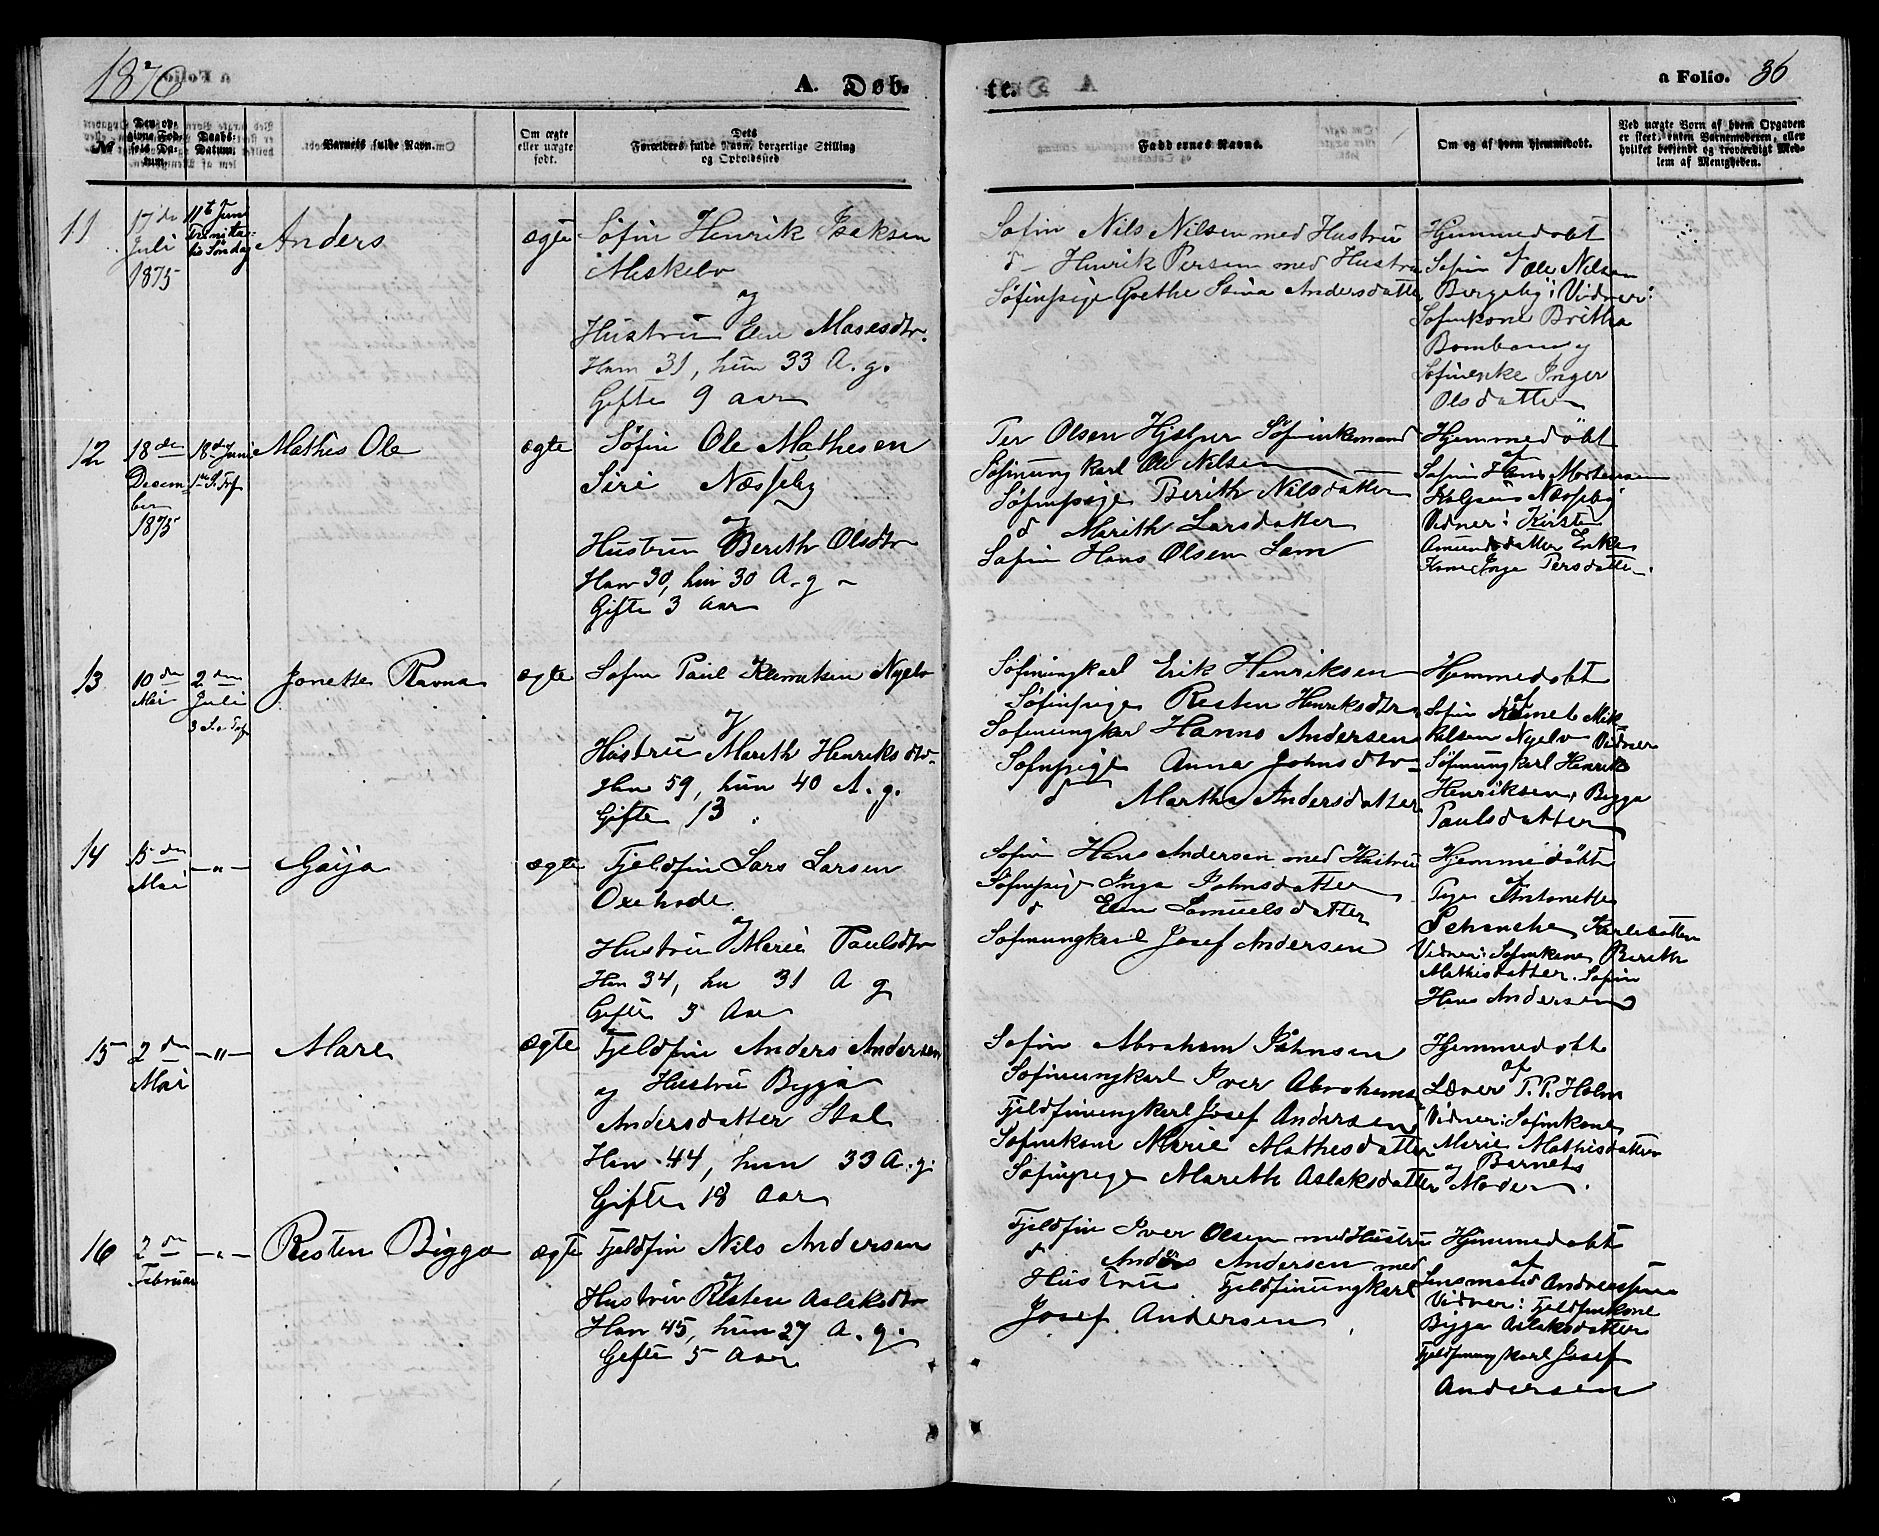 1876
A. Døb-
te.
a Folio. 36
№
Den op-
givne Fød-
sels Da-
tum.
Daabs-
Datum.
Barnets fulde Navn.
Om ægte
eller uægte
født.
Dets
Forældres fulde Navn, borgerlige Stilling
og Opholdssted
Faddernes Navne.
Om og af hvem hjemmedøbt.
Ved uægte Børn af hvem Opgaven
er skeet, enten Barnemoderen, eller
hvilket bekjendt og troværdigt Med-
lem af Menigheden.
11
17de
Juli
1875
11te Juni
Trinita-
tis Søndag
Anders
ægte
Søfin Henrik Isaksen
Meskelv
og
Hustru Elen Mosesdtr.
Ham 31, hun 33 A. g.
Gifte 9 aar
Søfin Nils Nilsen med Hustru
d - Henrik Persen med Hustru
Søfinpige Grethe Stina Andersdatter
Hjemmedøbt
Søfin Ole Nilsen
Bergeby; Vidner:
Søfinkone Britha
Bomban og
Søfinenke Inger
Olsdatter
12
18de
Decem
ber
1875
18de Juni
1ste S. Trf
Mathis Ole
ægte
Søfin Ole Mathesen
Siri Næsseby
og
Hustru Berith Olsdtr
Han 30, hun 30 A. g
Gifte 3 Aar
Per Olsen Hjelper Søfinkemand
Søfinung karl Ole Nilsen
Søfinpige Berith Nilsdatter
d Marith Larsdatter
Søfin Hans Olsen Lam
Hjemmedøbt
af
Søfin Hans Mortensen
Næsseby
Vidner: Kirsten
Amundsdatter Enke
Kone Inga Persdatter
13
10den
Mai
2den
Juli
3 S. e. Trf
Jonette Ravna
ægte
Søfin Paul Klemetsen Nyelv
og
Hustru Marith Henriksdtr
Han 59, hun 40 A. g.
Gifte 13
Søfinungkarl Erik Henriksen
Søfinpige Resten Henriksdtr
Søfinungkarl Hanno Andersen
Søfinpige Anna Johnsdtr
d Martha Andersdatter
Hjemmedøbt
af
Søfin Klemet Mik-
kelsen Nyelv Vidner
Søfinungkarl Henrik
Henriksen, Bigga
Paulsdatter
14
5den
Mai
-"-
Gaija
ægte
Fjeldfin Lars Larsen
Oxehode
og
Hustru Marie Paulsdtr
Han 34, hu 31 A g
Gifte 3 Aar
Søfin Hans Andersen med Hustru
Søfinpige Inga Johnsdatter
d Elen Samuelsdatter
Søfinungkarl Josef Andersen
Hjemmedøbt
af
Pige Antonette
Schanche, Karlebotten
Vidner: Søfinkone Berith
Mathisdatter. Søfin
Hans Andersen
15
2den
Mai
-"-
Mare
ægte
Fjeldfin Anders Andersen
og Hustru Bygga
Andersdatter Stal
Han 44, hun 33 A. g.
Gifte 18 Aar
Søfin Abraham Johnsen
Søfinungkarl Iver Abrahams
Fjeldfinungkarl Josef Andersen
Søfinkone Marie Mathesdatter
Søfinpige Marith Aslaksdatter
Hjemmedøbt
af
Lærer P. P. Holm
Vidner: Søfinkone
Marie Mathisdatter
og Barnets
Moder
16
2den
Februar
-"-
Resten Bigga
ægte
Fjeldfin Nils Andersen
og
Hustru Resten Aslaksdtr
Han 45, hun 27 A. g.
Gifte 5 Aar
Fjeldfin Iver Olsen med Hustru
d Anders Andersen med
Hustru Fjeldfinungkarl
Josef Andersen
Hjemmedøbt
af
Lensmand
Vidner: Fjeldfinkone
Bygga Aslaksdatter
Fjeldfinung karl Josef
Andersen